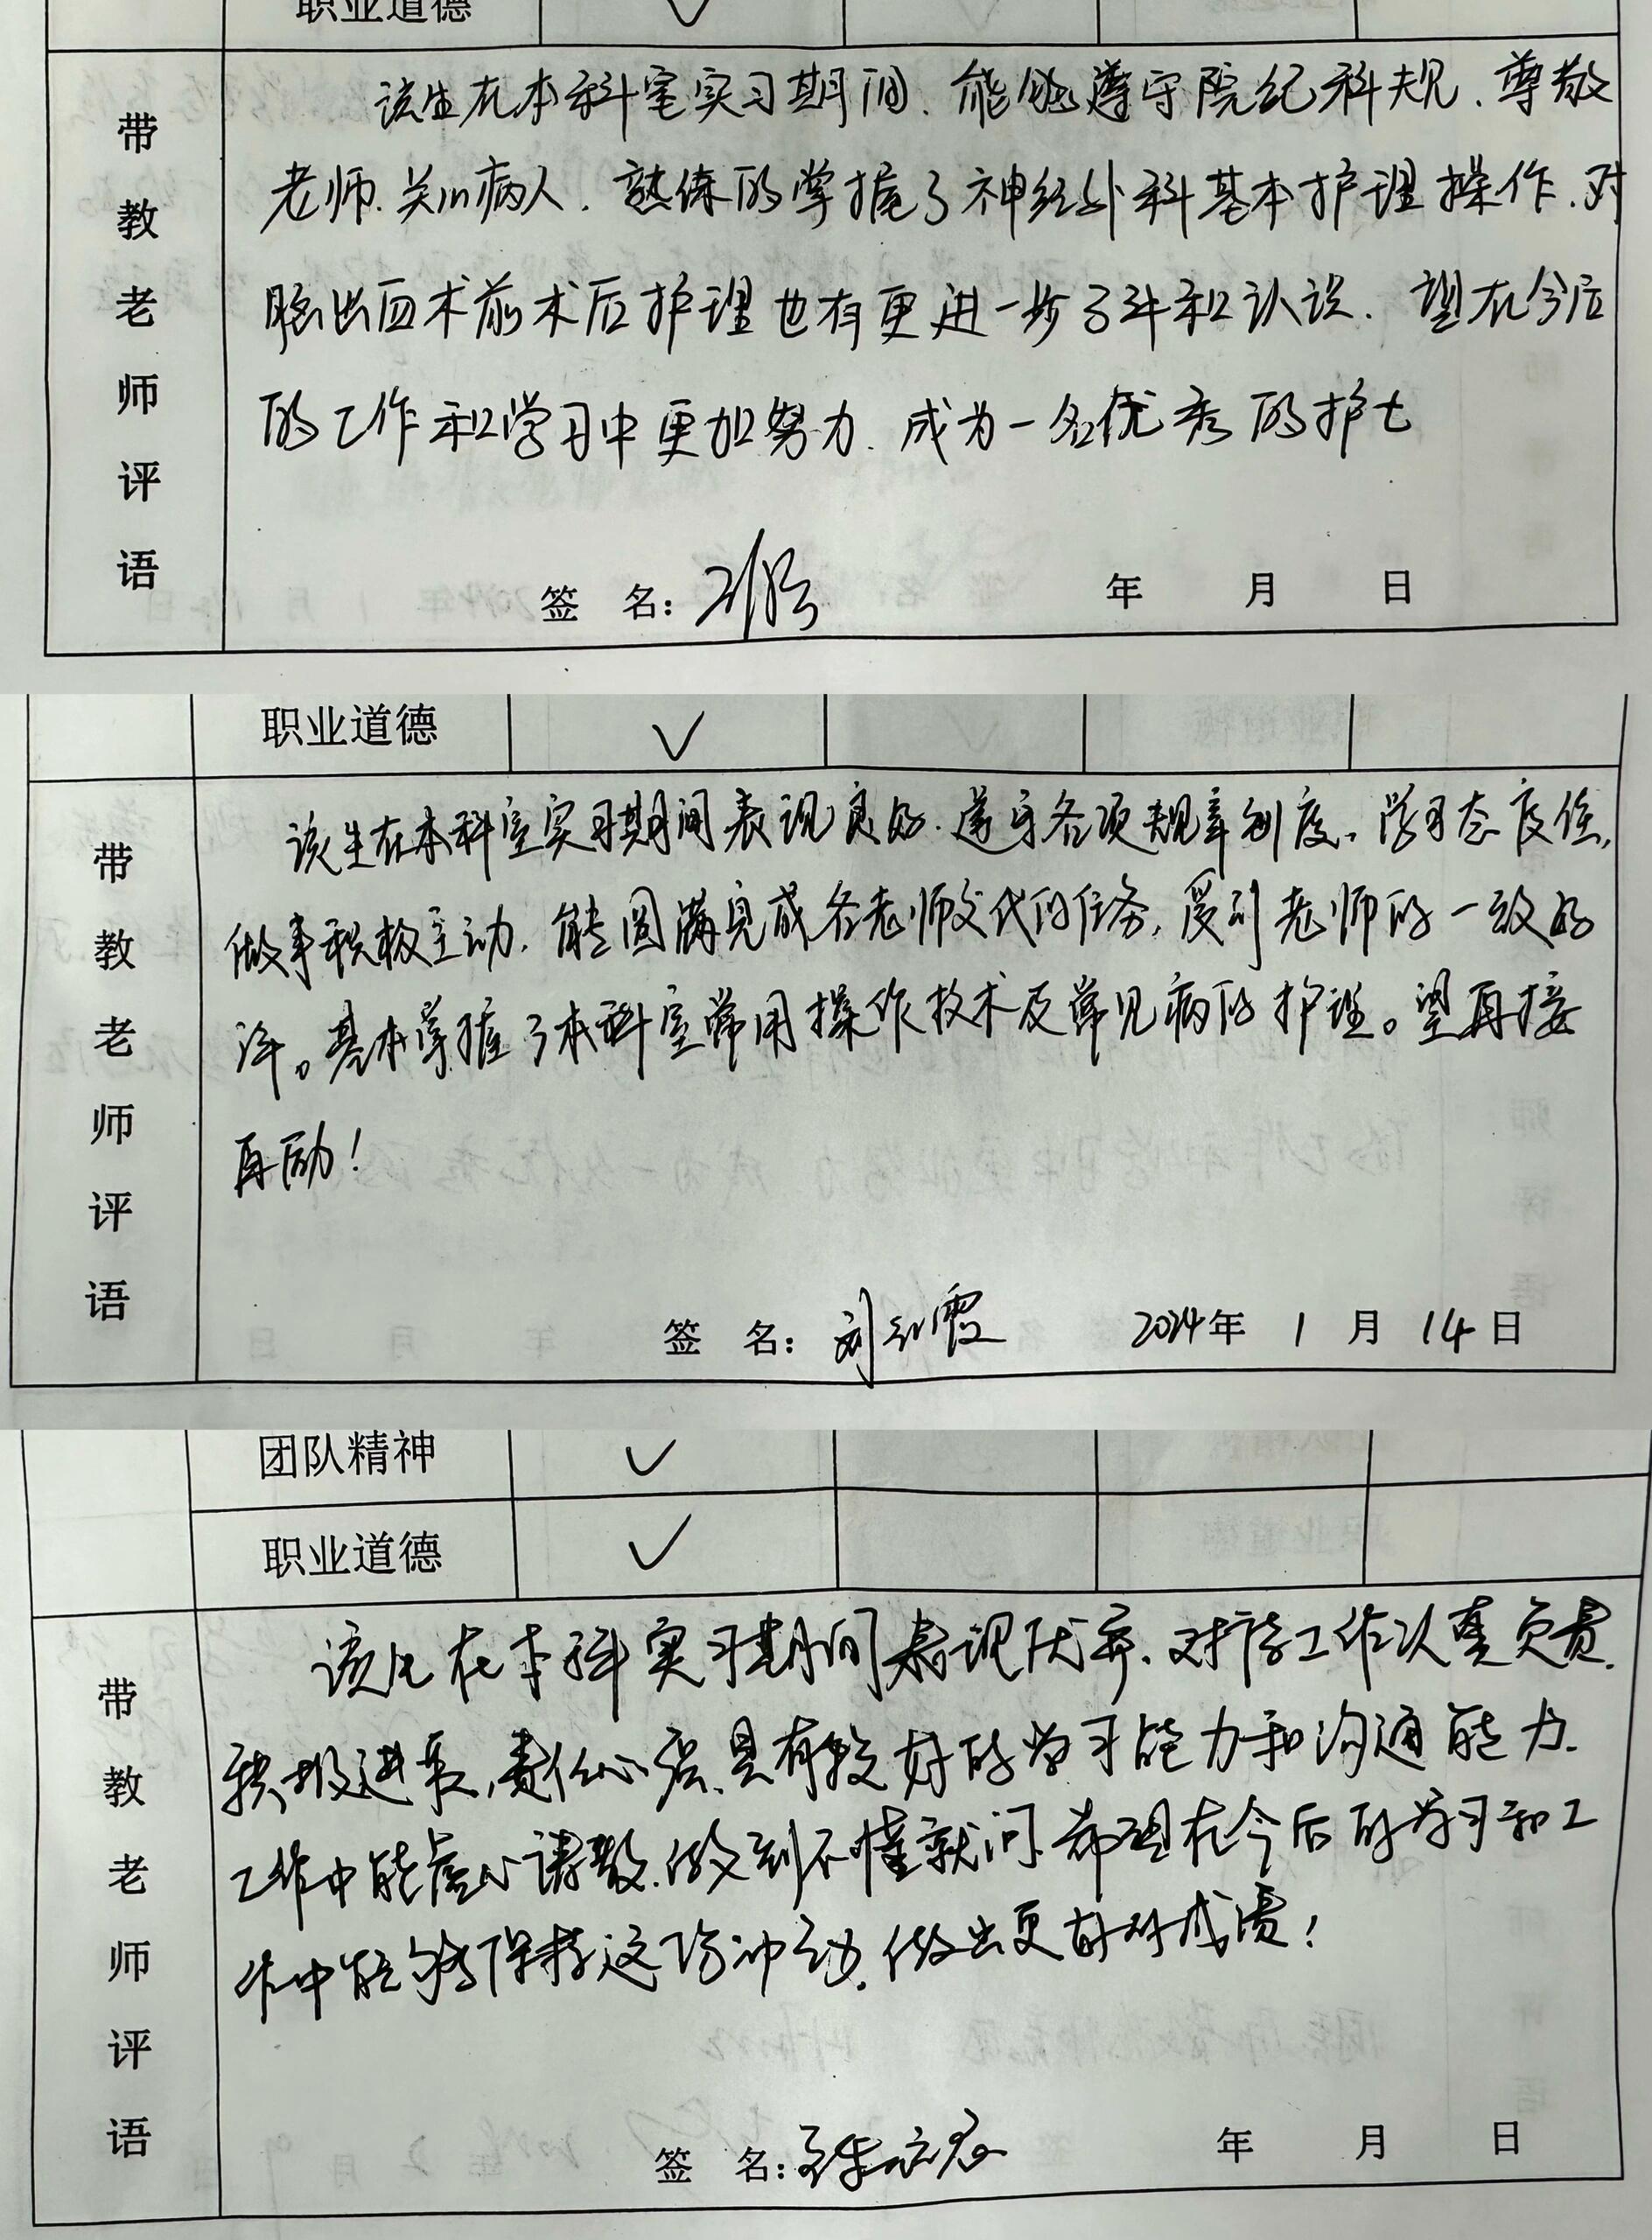 职业道德 ✓
带教老师评语
该生在本科室实习期间、能够遵守院纪科规、尊敬
老师、关心病人、熟练的掌握了神经外科基本护理操作、对
脑出血术前术后护理也有更进一步了解和认识、望在今后
的工作和学习中更加努力、成为一名优秀的护士
签 名： 年 月 日
职业道德 ✓
带教老师评语
该生在本科室实习期间表现良好、遵守各项规章制度。学习态度佳，
做事积极主动，能圆满完成各老师交代的任务，受到老师的一致好
评。基本掌握了本科室常用操作技术及常见病的护理。望再接
再励！
签 名：刘红霞 2024年 1 月 14 日
团队精神 ✓
职业道德 ✓
带教老师评语
该生在本科实习期间表现优异、对待工作认真负责、
积极进取、责任心强、具有较好的学习能力和沟通能力、
工作中能虚心请教、做到不懂就问、希望在今后的学习和工
作中能够保持这份冲劲、做出更好的成绩！
签 名： 年 月 日